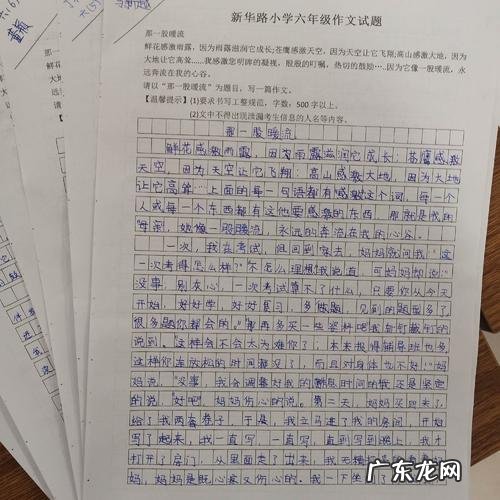 大(6)
董颖
六(5)
新华路小学六年级作文试题
那一股暖流
鲜花感激雨露，因为雨露滋润它成长;苍鹰感激天空，因为天空让它飞翔;高山感激大地，因为大
地让它高耸……我感激您明眸的凝视，殷殷的叮嘱，热切的鼓励…因为它像一股暖流，永
远奔流在我的心谷。
请以“那一股暖流”为题目，写一篇作文。
【温馨提示】(1)要求书写工整规范，字数：500字以上。
(2)文中不得出现泄漏考生信息的人名等内容。
那一股暖流
鲜花感激雨露，因为雨露滋润它成长；苍鹰感激
天空，因为天空让它飞翔；高山感激大地，因为大地
让它高耸…上面的每一句语都有感激这个词，每一个
人或每一个东西都有这他要感激的东西，那就是我的
母亲，她像一股暖流，永远的奔流在我的心谷。
一次，我在考试，但回到家去，妈妈就问我“这
一次考得怎么样？”“不怎么理想”我说道，可妈妈却说
“没事，别灰心，一次考试算不了什么，只要你从今天
开始，好好学，好好复习，多做题，见到的题型多了
很多题你都会的。”“那再多买一些资料吧”我
说到。“这样会不会太为难你了，本来报得辅导班也多，
这样你连放松的时间都没了，而且对身体也不好”妈
妈说，“没事，我会调整好我的时间的”我还是坚定
的说，“好吧”妈妈伤心的说。第二天，妈妈买回来了，
给了我两套卷子，于是，我立马进了我的房间，开始
写了起来，我一直写，一直写，直到写到晚上，我才
打开了房门，从里面走了出来，我无精打采
妈，妈妈是既心疼又伤心的。我一下坐
广东龙网